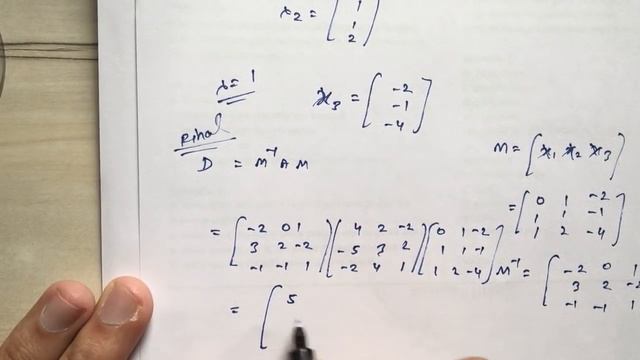 x₂ = [1 1 2]
λ = 1 x₃ = [-2 -1 -4]
Final
D = M⁻¹ A M
M = [x₁ x₂ x₃]
= [0 1 -2; 1 1 -1; 1 2 -4]
= [-2 0 1; 3 2 -2; -1 -1 1] [4 2 -2; -5 3 2; -2 4 1] [0 1 -2; 1 1 -1; 1 2 -4]
M⁻¹ = [-2 0 1; 3 2 -2; -1 -1 1]
= [5